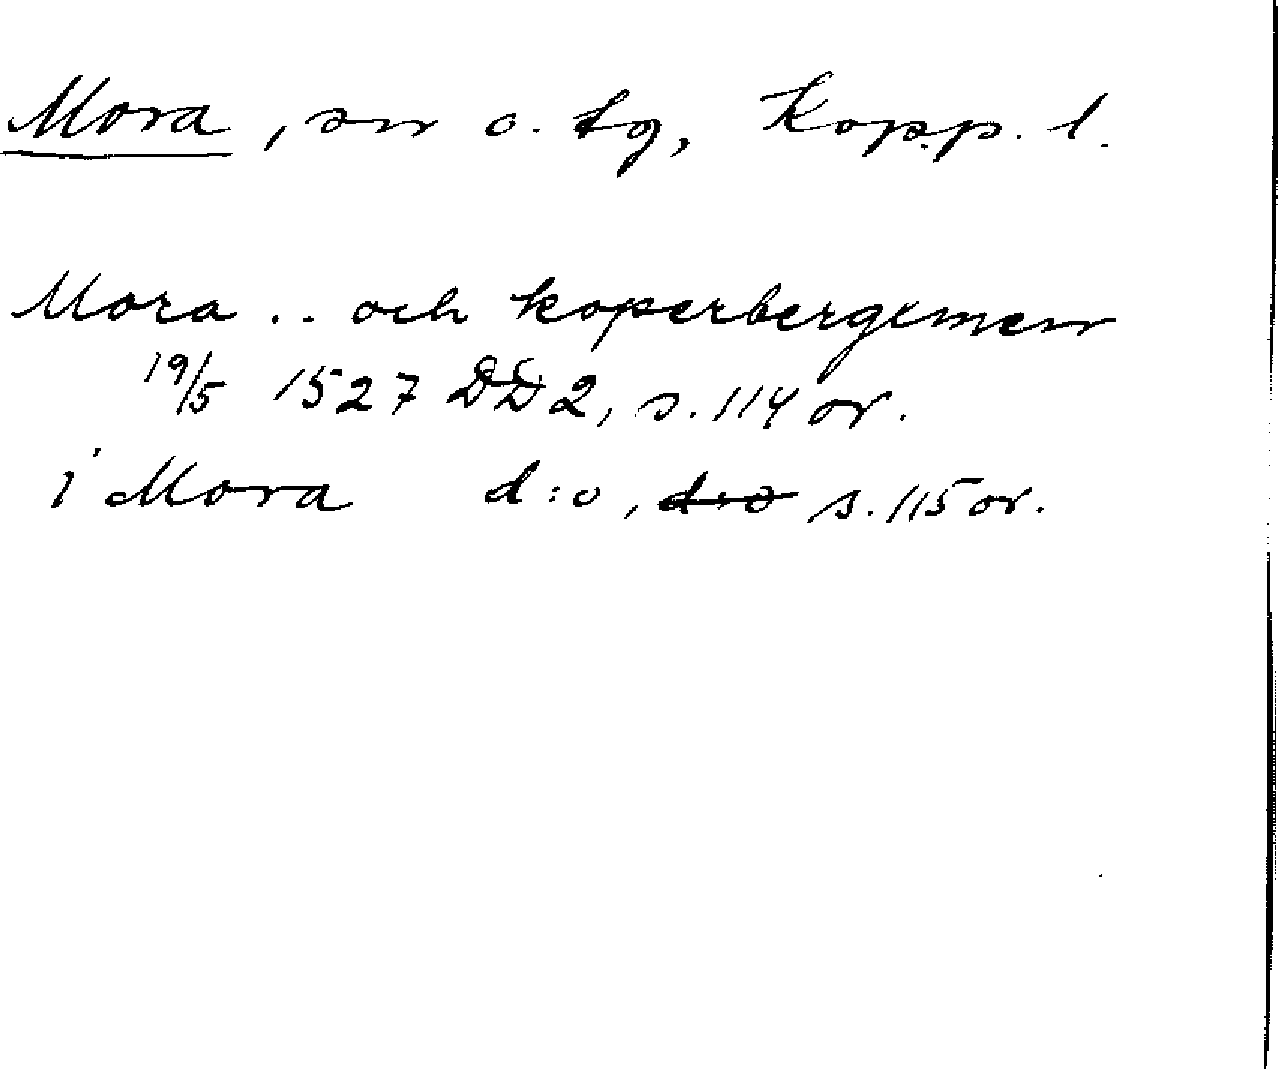 Mora, sn o. tg, Kopp. l.
Mora .. och koperbergemen
19/5 1527 DD 2, s. 114 or.
i Mora d:o, d:o s. 115 or.